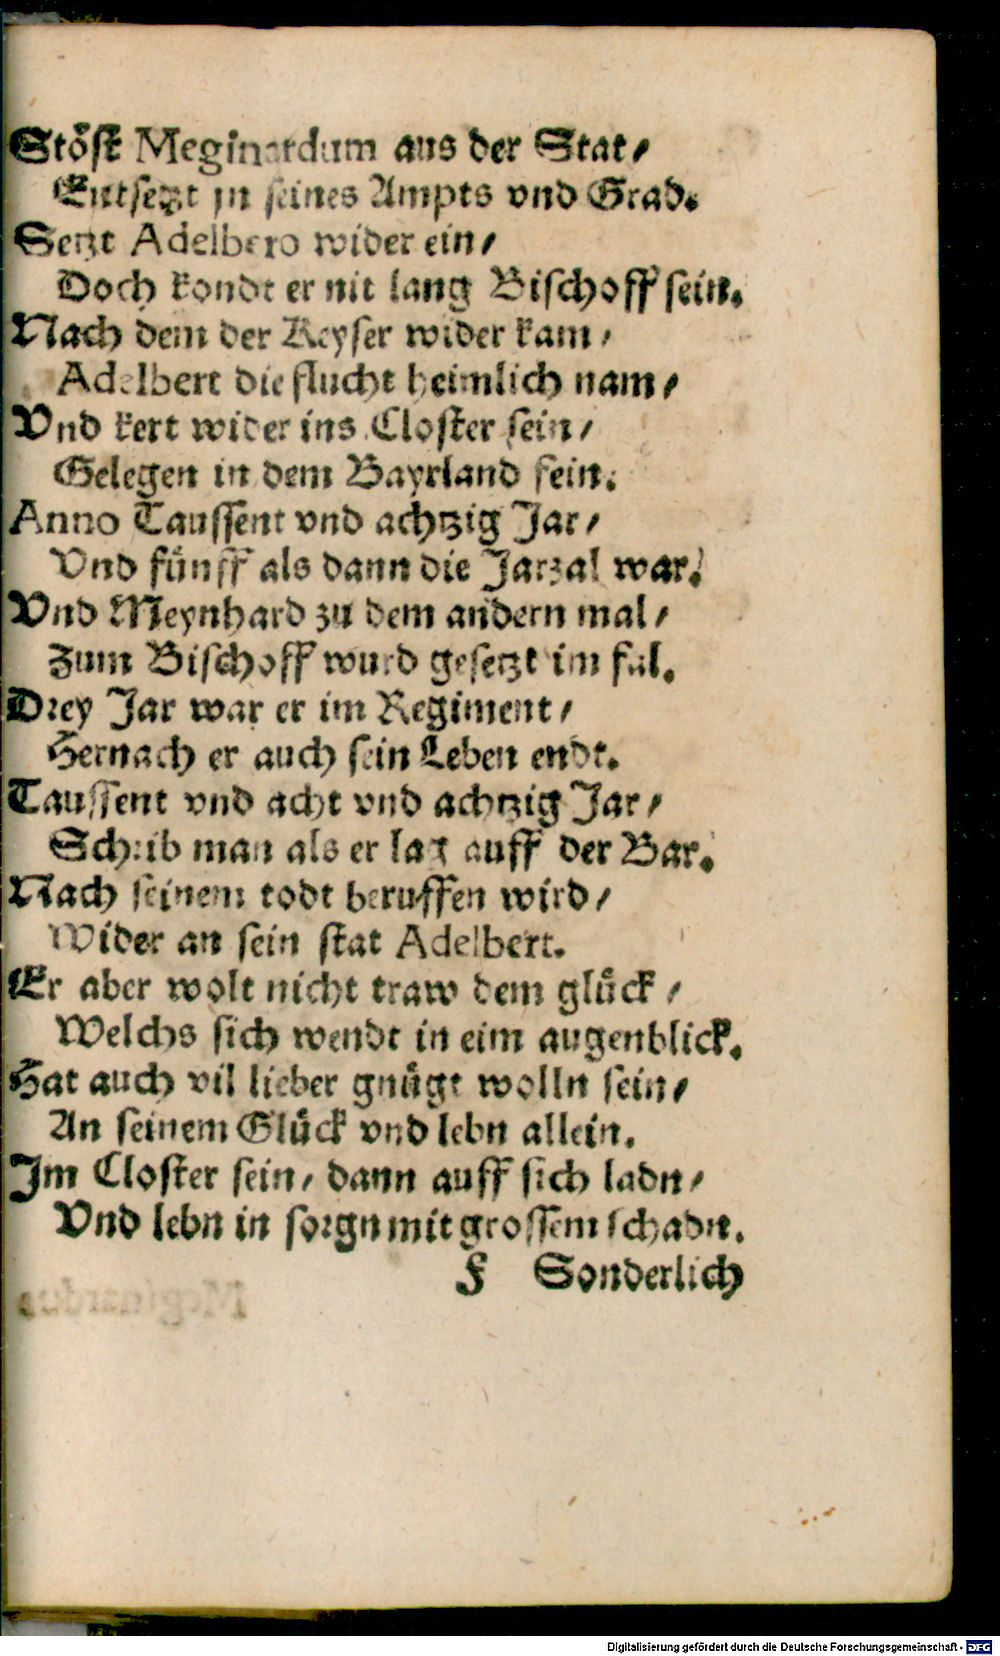 Stöst Meginardum aus der Stat/
Entsetzt jn seines Ampts vnd Grad.
Setzt Adelbero wider ein/
Doch kondt er nit lang Bischoff sein.
Nach dem der Keyser wider kam/
Adelbert die flucht heimlich nam/
Vnd kert wider ins Closter sein/
Gelegen in dem Bayrland fein.
Anno Taussent vnd achtzig Jar/
Vnd fünff als dann die Jarzal war.
Vnd Meynhard zu dem andern mal/
Zum Bischoff wurd gesetzt im fal.
Drey Jar war er im Regiment/
Hernach er auch sein Leben endt.
Taussent vnd acht vnd achtzig Jar/
Schrib man als er lag auff der Bar.
Nach seinem todt beruffen wird/
Wider an sein stat Adelbert.
Er aber wolt nicht traw dem glück/
Welchs sich wendt in eim augenblick.
Hat auch vil lieber gnügt wolln sein/
An seinem Glück vnd lebn allein.
Im Closter sein/ dann auff sich ladn/
Vnd lebn in sorgn mit grossem schadn.
F Sonderlich
Digitalisierung gefördert durch die Deutsche Forschungsgemeinschaft - DFG